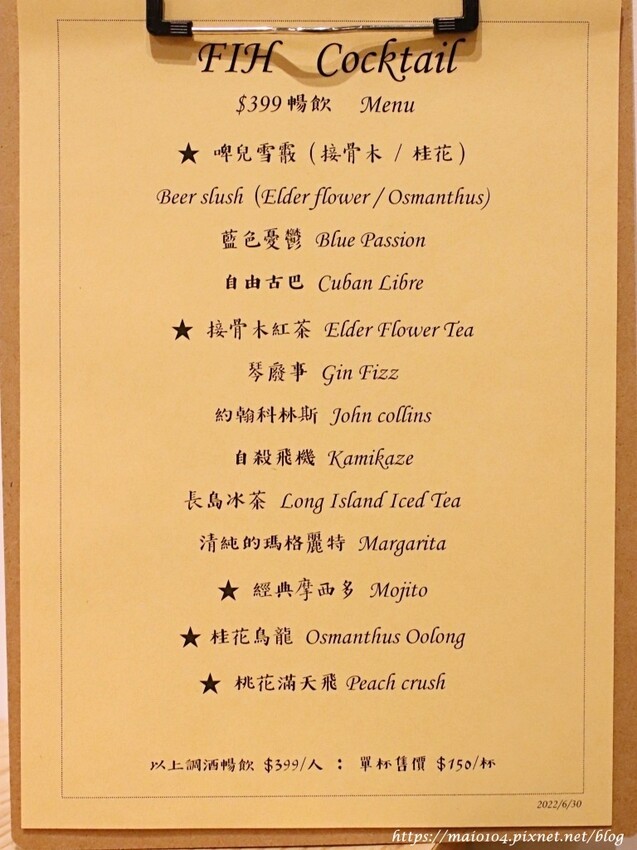 FIH Cocktail
$399 暢飲 Menu
★ 啤兒雪霰 (接骨木 / 桂花)
Beer slush (Elder flower / Osmanthus)
藍色憂鬱 Blue Passion
自由古巴 Cuban Libre
★ 接骨木紅茶 Elder Flower Tea
琴廢事 Gin Fizz
約翰科林斯 John collins
自殺飛機 Kamikaze
長島冰茶 Long Island Iced Tea
清純的瑪格麗特 Margarita
★ 經典摩西多 Mojito
★ 桂花烏龍 Osmanthus Oolong
★ 桃花滿天飛 Peach crush
以上調酒暢飲 $399/人 : 單杯售價 $150/杯
2022/6/30
https://maio104.pixnet.net/blog